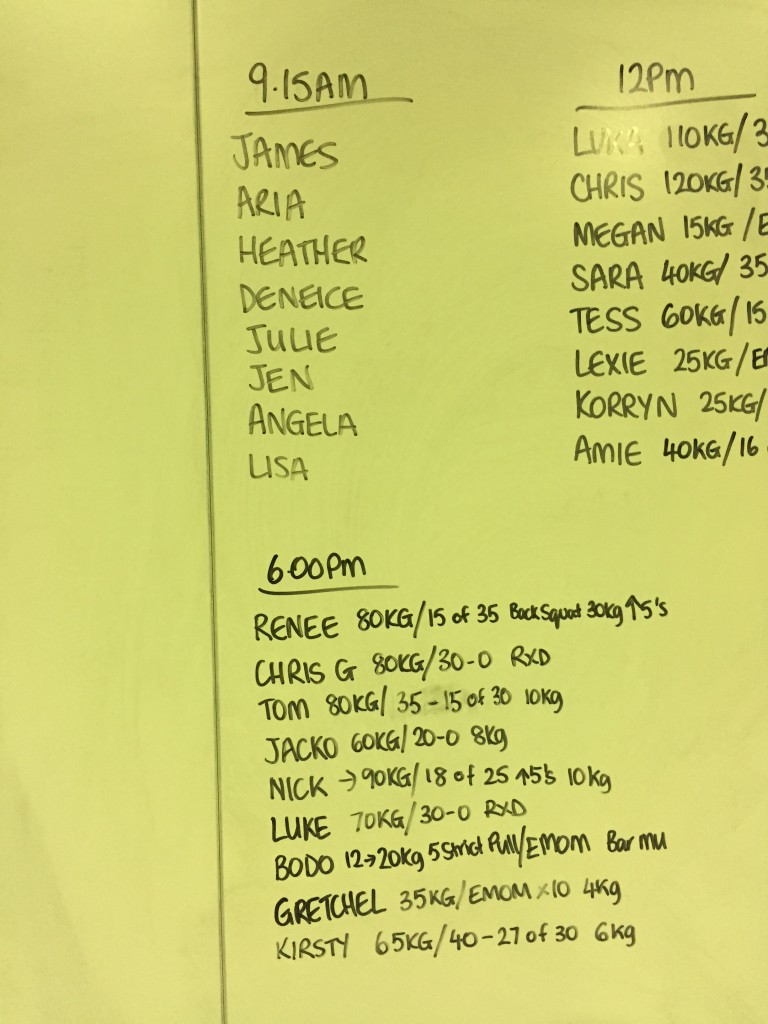 9.15AM
JAMES
ARIA
HEATHER
DENEICE
JULIE
JEN
ANGELA
LISA
12Pm
LUKA 110KG/3
CHRIS 120KG/35
MEGAN 15KG/E
SARA 40KG/35
TESS 60KG/15
LEXIE 25KG/E
KORRYN 25KG/
AMIE 40KG/16
6.00Pm
RENEE 80KG/15 of 35 Back Squat 30kg ↑5's
CHRIS G 80KG/30-0 RXD
TOM 80KG/ 35-15 of 30 10kg
JACKO 60KG/20-0 8kg
NICK → 90KG/18 of 25 ↑5's 10kg
LUKE 70KG/30-0 RXD
BODO 12→20kg 5 Strict Pull/EMOM Bar mu
GRETCHEL 35KG/EMOM x10 4kg
KIRSTY 65KG/40-27 of 30 6kg